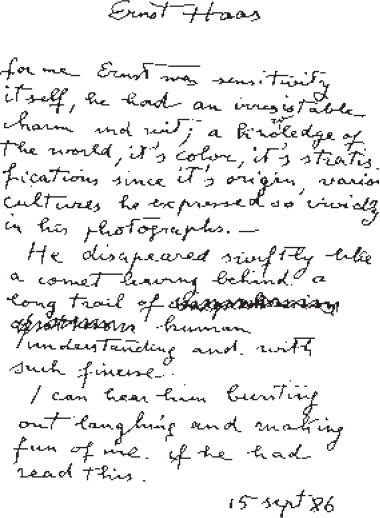 Ernst Haas
for me Ernst was sensitivity
itself, he had an irresistable
charm and wit; a knowledge of
the world, it's color, it's stratis
fications since it's origin, various
cultures he expressed so vividly
in his photographs. —
He disapeared swiftly like
a comet leaving behind a
long trail of
human
understanding and with
such finesse.
I can hear him bursting
out laughing and making
fun of me. if he had
read this.
15 sept 86